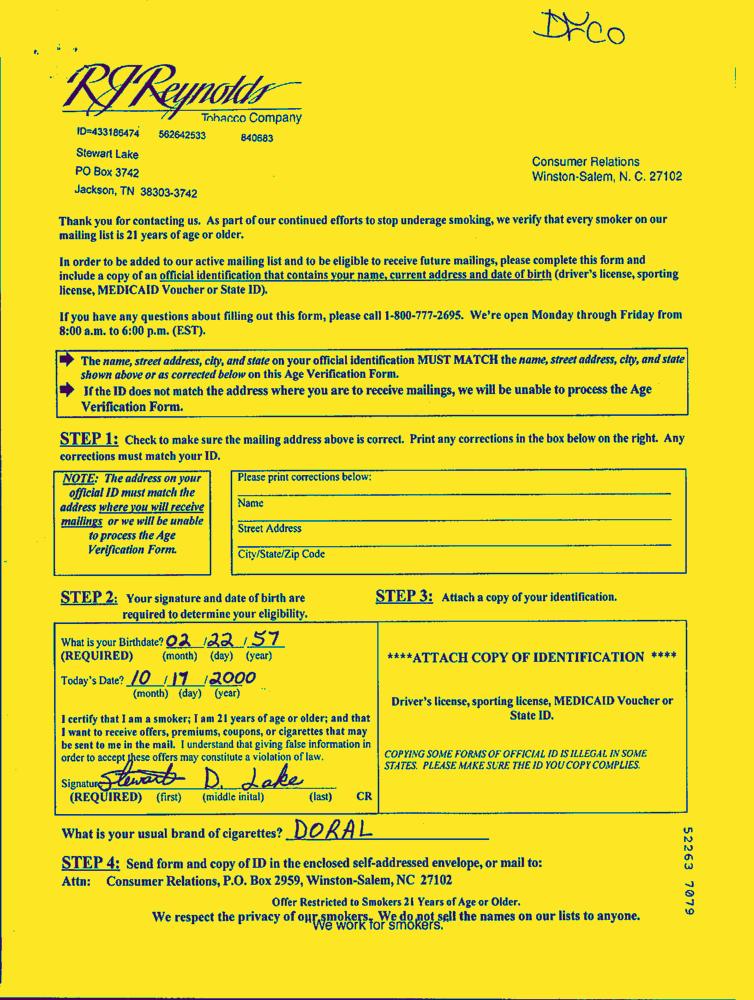 RJReynolds
Tobacco Company
ID=433186474 562642533 840683
Stewart Lake
PO Box 3742
Jackson, TN 38303-3742
Consumer Relations
Winston-Salem, N. C. 27102
Thank you for contacting us. As part of our continued efforts to stop underage smoking, we verify that every smoker on our
mailing list is 21 years of age or older.
In order to be added to our active mailing list and to be eligible to receive future mailings, please complete this form and
include a copy of an official identification that contains your name, current address and date of birth (driver's license, sporting
license, MEDICAID Voucher or State ID).
If you have any questions about filling out this form, please call 1-800-777-2695. We're open Monday through Friday from
8:00 a.m. to 6:00 p.m. (EST).
The name, street address, city, and state on your official identification MUST MATCH the name, street address, city, and state
shown above or as corrected below on this Age Verification Form.
If the ID does not match the address where you are to receive mailings, we will be unable to process the Age
Verification Form.
STEP 1: Check to make sure the mailing address above is correct. Print any corrections in the box below on the right. Any
corrections must match your ID.
NOTE: The address on your
official ID must match the
address where you will receive
mailings or we will be unable
to process the Age
Verification Form.
Please print corrections below:
Name
Street Address
City/State/Zip Code
STEP 2: Your signature and date of birth are
required to determine your eligibility.
What is your Birthdate? 02 / 22 / 57
(REQUIRED) (month) (day) (year)
Today's Date? 10 / 17 / 2000
(month) (day) (year)
I certify that I am a smoker; I am 21 years of age or older; and that
I want to receive offers, premiums, coupons, or cigarettes that may
be sent to me in the mail. I understand that giving false information in
order to accept these offers may constitute a violation of law.
Signature Stewart D. Lake
(REQUIRED) (first) (middle inital) (last) CR
STEP 3: Attach a copy of your identification.
****ATTACH COPY OF IDENTIFICATION ****
Driver's license, sporting license, MEDICAID Voucher or
State ID.
COPYING SOME FORMS OF OFFICIAL ID IS ILLEGAL IN SOME
STATES. PLEASE MAKE SURE THE ID YOU COPY COMPLIES.
What is your usual brand of cigarettes? DORAL
STEP 4: Send form and copy of ID in the enclosed self-addressed envelope, or mail to:
Attn: Consumer Relations, P.O. Box 2959, Winston-Salem, NC 27102
Offer Restricted to Smokers 21 Years of Age or Older.
We respect the privacy of our smokers. We do not sell the names on our lists to anyone.
We work for smokers.
52263 7079